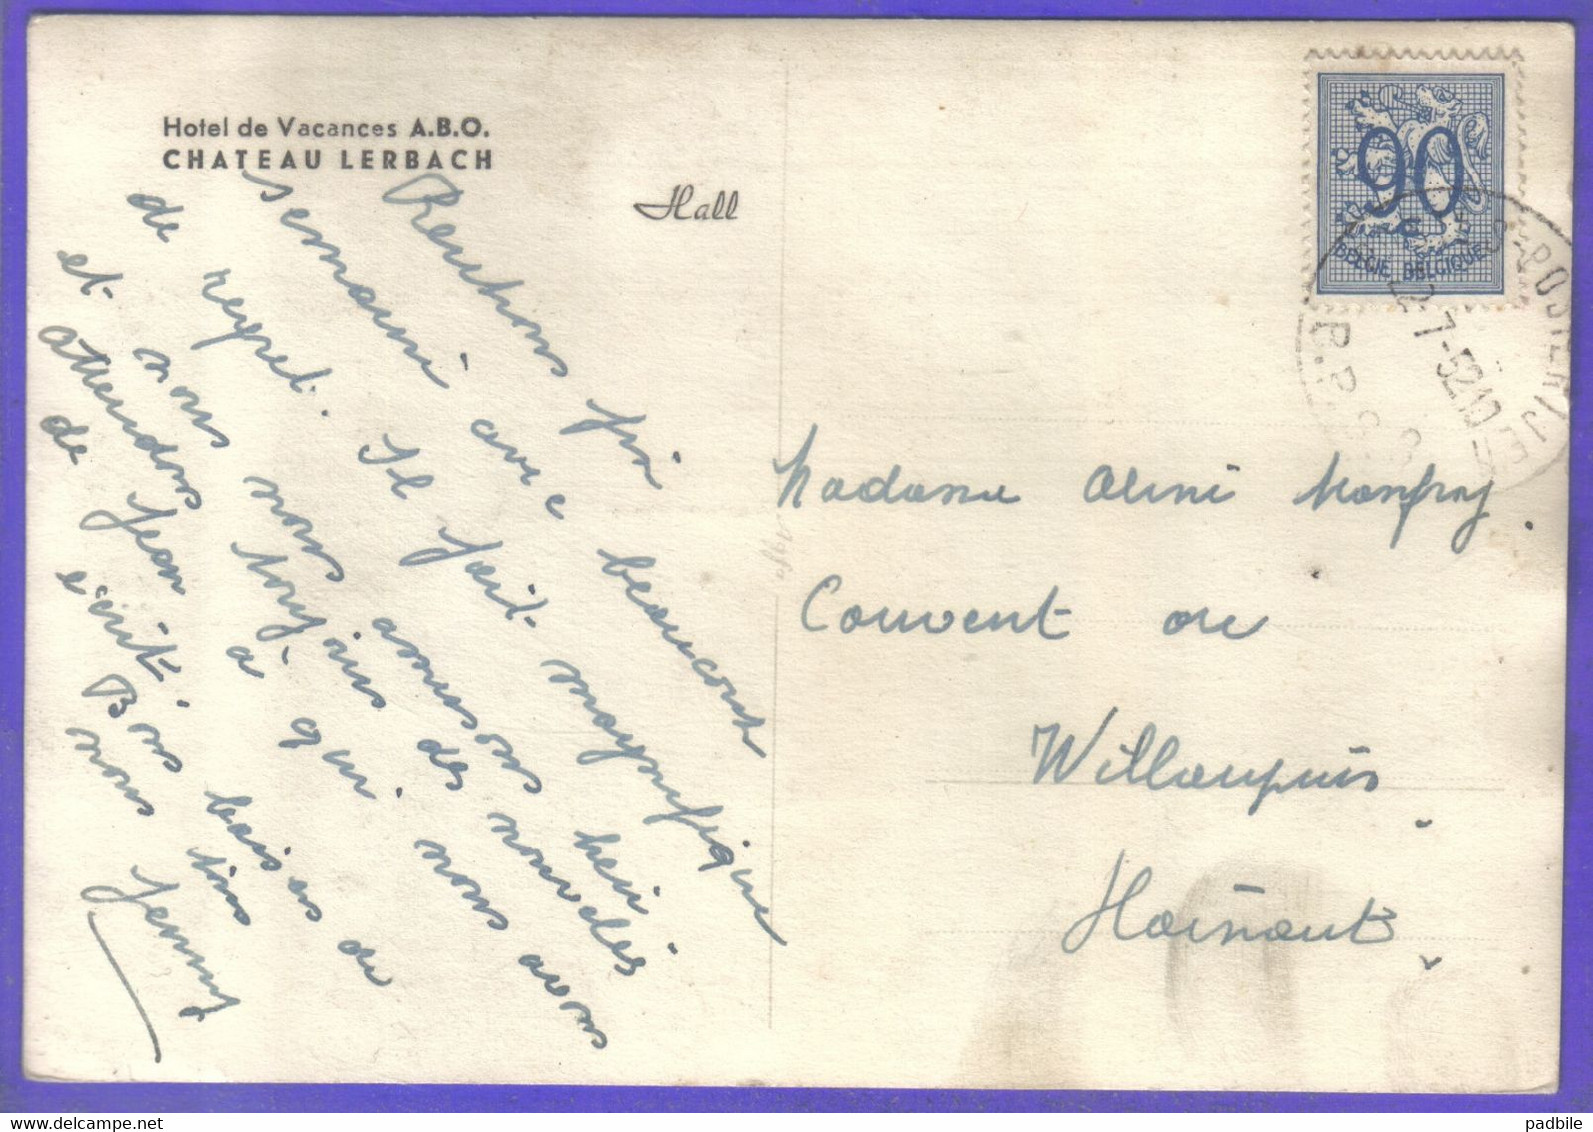 Hotel de Vacances A.B.O.
CHATEAU LERBACH
Hall
Rentrons fin
semaine avec beaucoup
de regret. Il fait magnifique
et nous nous amusons bien
attendons toujours des nouvelles
de Jean à qui nous avons
écrit. Bons baisers de
nous tous
Jenny
90
c
BELGIE BELGIQUE
S-POSTERIJEN
2-7-52 10
B.P.S.
Madame
Couvent de
Willaupuis
Hainaut
padbile
www.delcampe.net